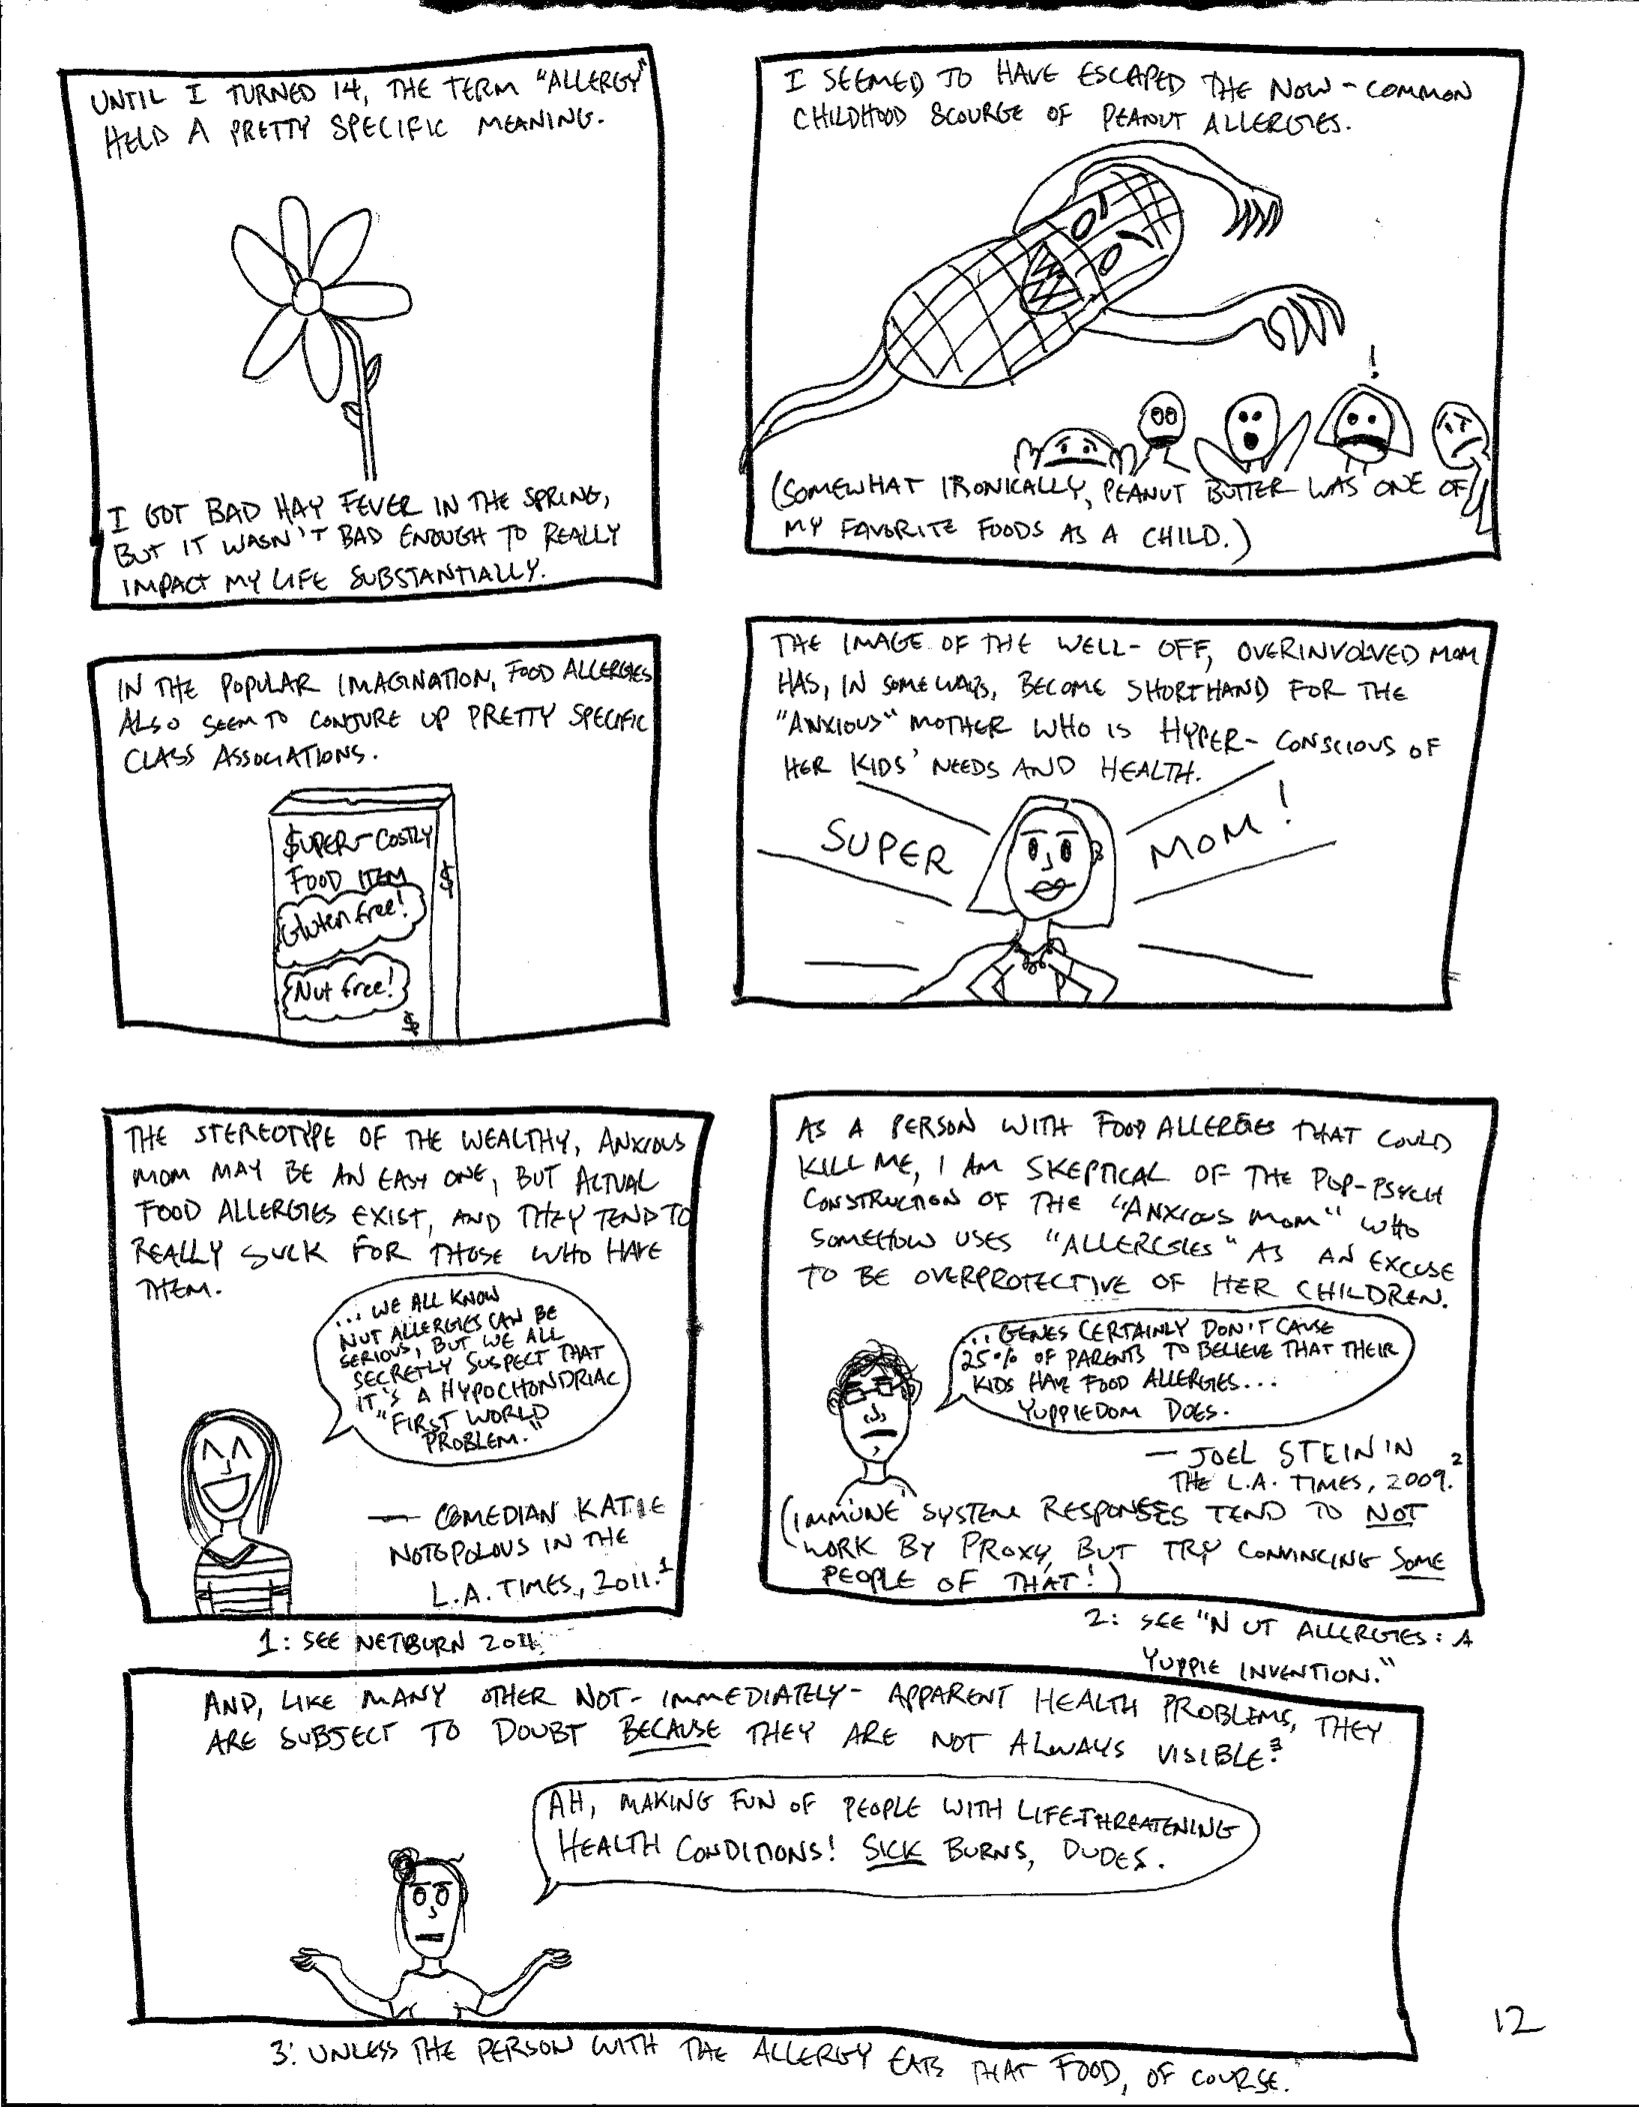 UNTIL I TURNED 14, THE TERM "ALLERGY"
HELD A PRETTY SPECIFIC MEANING.
I GOT BAD HAY FEVER IN THE SPRING,
BUT IT WASN'T BAD ENOUGH TO REALLY
IMPACT MY LIFE SUBSTANTIALLY.
I SEEMED TO HAVE ESCAPED THE NOW-COMMON
CHILDHOOD SCOURGE OF PEANUT ALLERGIES.
!
(SOMEWHAT IRONICALLY, PEANUT BUTTER WAS ONE OF
MY FAVORITE FOODS AS A CHILD.)
IN THE POPULAR IMAGINATION, FOOD ALLERGIES
ALSO SEEM TO CONJURE UP PRETTY SPECIFIC
CLASS ASSOCIATIONS.
$UPER-COSTLY
FOOD ITEM
$
Gluten free!
Nut free!
$
THE IMAGE OF THE WELL-OFF, OVERINVOLVED MOM
HAS, IN SOME WAYS, BECOME SHORTHAND FOR THE
"ANXIOUS" MOTHER WHO IS HYPER-CONSCIOUS OF
HER KIDS' NEEDS AND HEALTH.
SUPER MOM!
THE STEREOTYPE OF THE WEALTHY, ANXIOUS
MOM MAY BE AN EASY ONE, BUT ACTUAL
FOOD ALLERGIES EXIST, AND THEY TEND TO
REALLY SUCK FOR THOSE WHO HAVE
THEM.
...WE ALL KNOW
NUT ALLERGIES CAN BE
SERIOUS, BUT WE ALL
SECRETLY SUSPECT THAT
IT'S A HYPOCHONDRIAC
"FIRST WORLD
PROBLEM."
— COMEDIAN KATIE
NOTOPOLOUS IN THE
L.A. TIMES, 2011.1
1: SEE NETBURN 2011.
AS A PERSON WITH FOOD ALLERGIES THAT COULD
KILL ME, I AM SKEPTICAL OF THE POP-PSYCH
CONSTRUCTION OF THE "ANXIOUS MOM" WHO
SOMEHOW USES "ALLERGIES" AS AN EXCUSE
TO BE OVERPROTECTIVE OF HER CHILDREN.
...GENES CERTAINLY DON'T CAUSE
25% OF PARENTS TO BELIEVE THAT THEIR
KIDS HAVE FOOD ALLERGIES...
YUPPIEDOM DOES.
— JOEL STEIN IN
THE L.A. TIMES, 2009.2
(IMMUNE SYSTEM RESPONSES TEND TO NOT
WORK BY PROXY, BUT TRY CONVINCING SOME
PEOPLE OF THAT!)
2: SEE "NUT ALLERGIES: A
YUPPIE INVENTION."
AND, LIKE MANY OTHER NOT-IMMEDIATELY-APPARENT HEALTH PROBLEMS, THEY
ARE SUBJECT TO DOUBT BECAUSE THEY ARE NOT ALWAYS VISIBLE.3
AH, MAKING FUN OF PEOPLE WITH LIFE-THREATENING
HEALTH CONDITIONS! SICK BURNS, DUDES.
3: UNLESS THE PERSON WITH THE ALLERGY EATS THAT FOOD, OF COURSE.
12